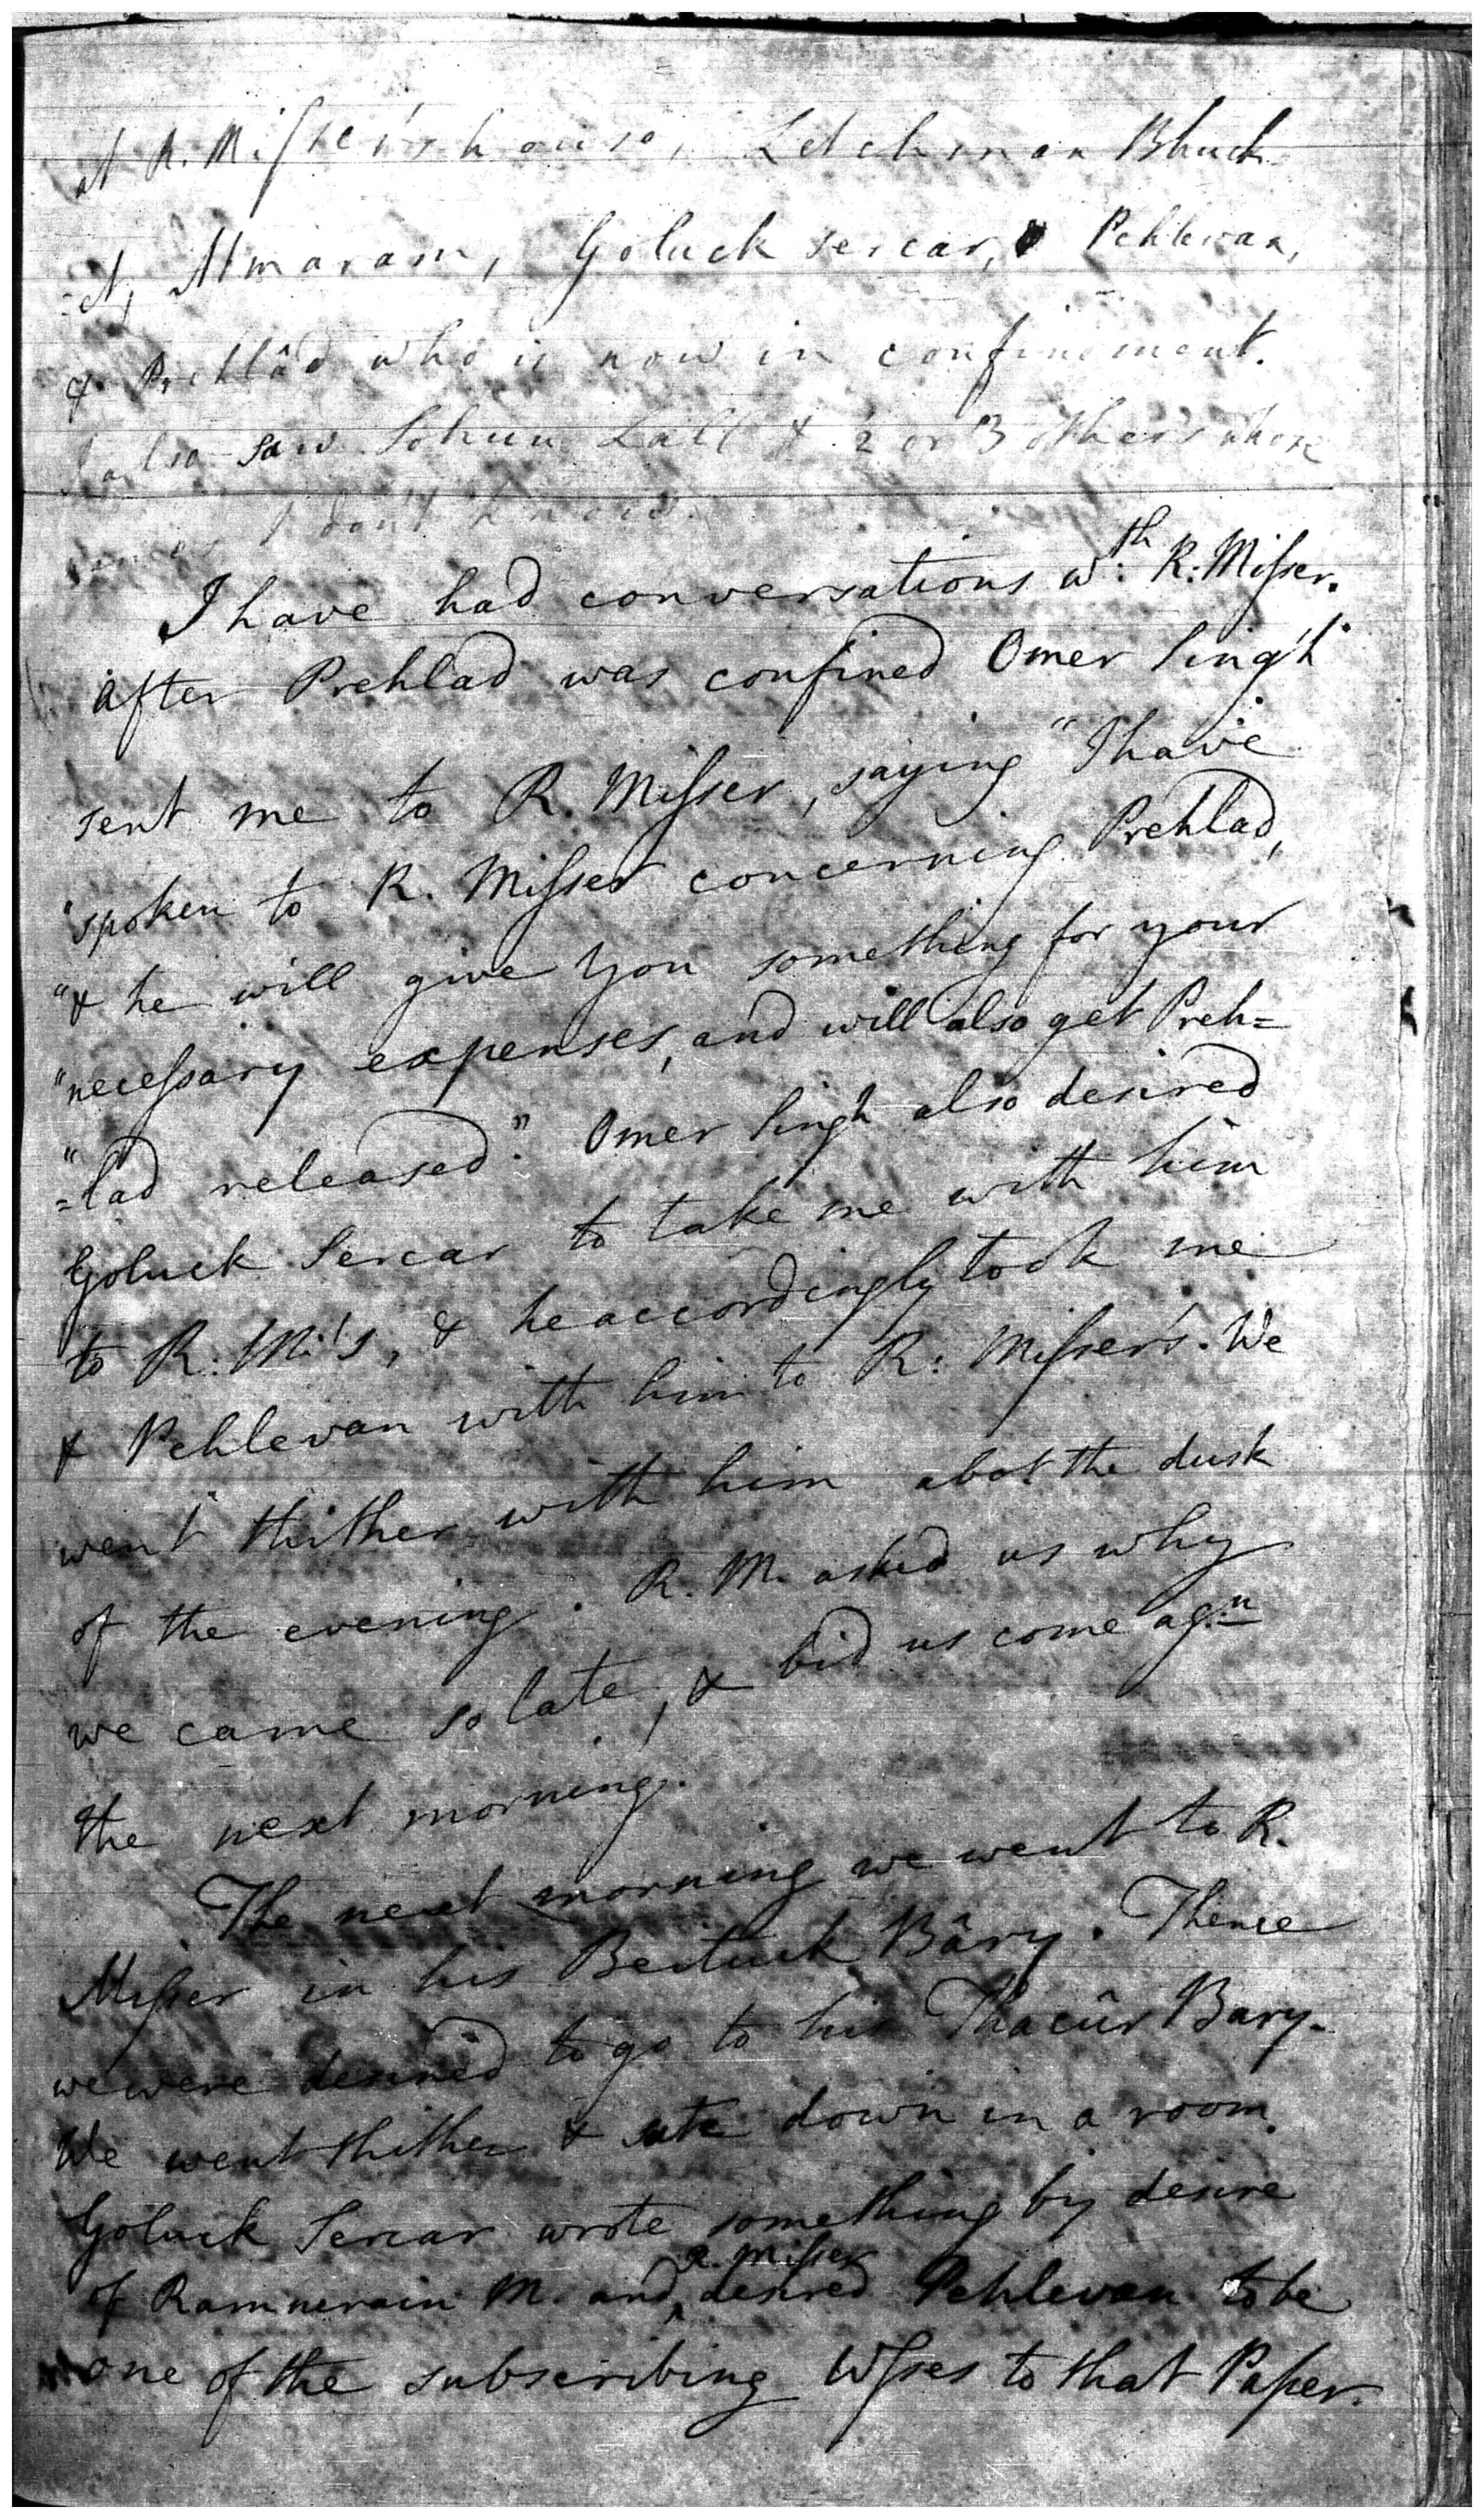 at R. Misser's house, Letchman Bhuck
=et, Atmaram, Goluck Sercar, Pehlevan,
& Prehlâd who is now in confinement.
I also saw Sohun Lall & 2 or 3 others whose
names I don't know.
I have had conversations wth. R: Misser.
After Prehlad was confined Omer Singh
sent me to R. Misser, saying "I have
"spoken to R. Misser concerning Prehlad,
"& he will give you something for your
"necessary expenses, and will also get Preh=
"=lad released." Omer Singh also desired
Goluck Sercar to take me with him
to R: M:'s, & he accordingly took me
& Pehlevan with him to R: Misser's. We
went thither with him abot the dusk
of the evening. R. M. asked us why
we came so late, & bid us come ag:n
the next morning.
The next morning we went to R.
Misser in his Beituck Bâry. Thence
we were desired to go to his Thacûr Bary.
We went thither & sate down in a room.
Goluck Sercar wrote something by desire
of Ramnerain M. and R. Misser desired Pehlevan to be
one of the subscribing Wsses to that Paper.